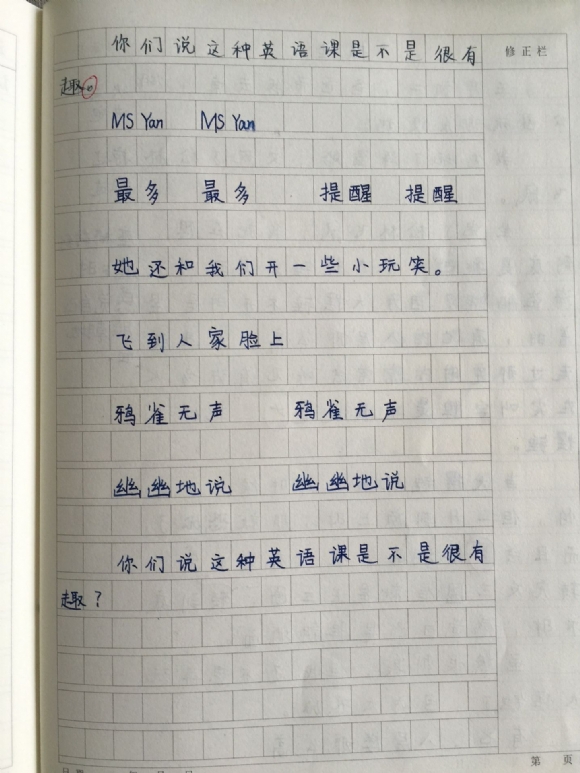 你们说这种英语课是不是很有
修正栏
趣。
MS Yan MS Yan
最多 最多 提醒 提醒
她还和我们开一些小玩笑。
飞到人家脸上
鸦雀无声 鸦雀无声
幽幽地说 幽幽地说
你们说这种英语课是不是很有
趣？
第 页